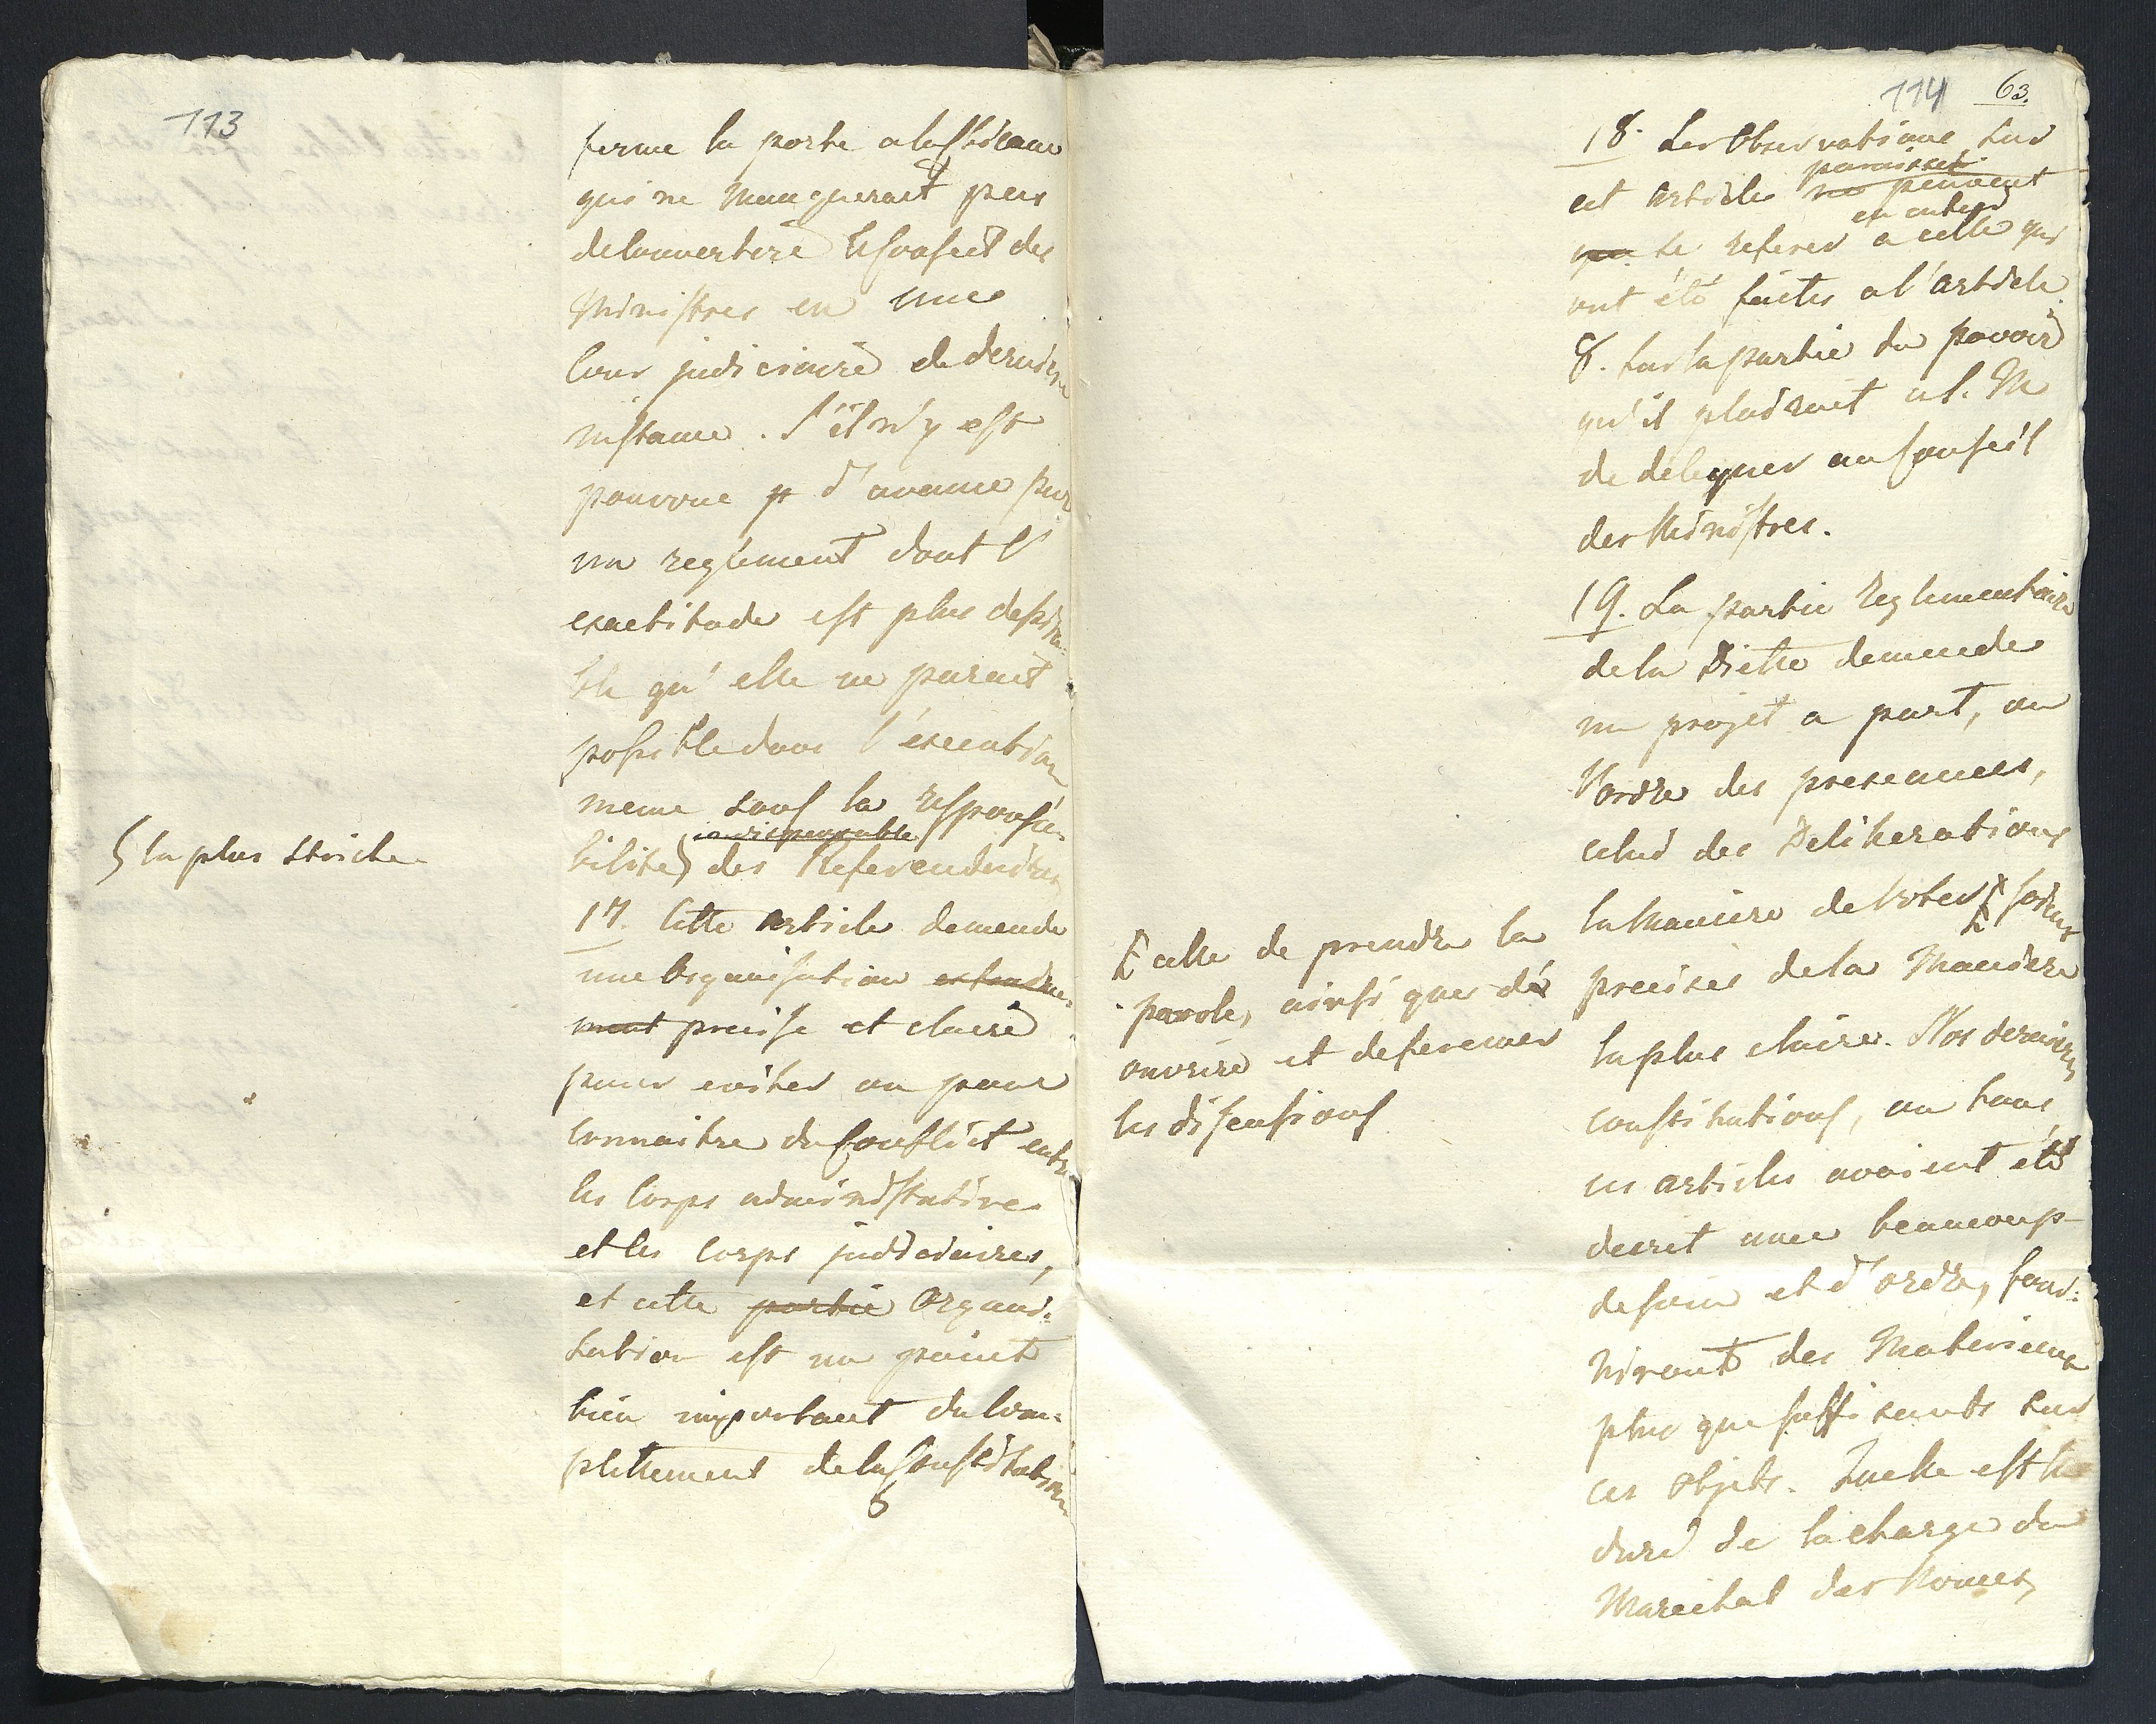 113
ferme la porte a la chicane
qui ne manquerait pas
de convertire le Conseil des
Ministres en une
Cour judiciaire de derniere
instance. S'il n'y est
pourvue d'avance par
un reglement dont l'
exactitude est plus desira-
ble qu'elle ne parait
possible dans l'execution
meme sous la responsa-
indispensable
bilité des Referendaires
§ la plus stricte
17. Cette Article demende
une Organisation extreme-
ment precise et claire
pour eviter ou pour
connaitre du Conflict entre
les Corps administrative
et les Corps judiciaires,
et cette partie Organi-
sation est un point
bien important du Com-
plettement de la Constitution
114 63.
18. Les Observations sur
paroissent
cet Article ne peuvent
en entier
que se referer a celle qui
ont été faites a l'Article
8. sur la partie du pouvoir
qu'il plairait a S. M
de deleguer au Conseil
des Ministres.
19. La partie Reglementaire
de la Diette demende
un projet a part, ou
l'ordre des preseances,
celui des Deliberations
la Maniere de Voter soient
celle de prendre la
parole, ainsi que de
ouvrire et defermer
les discussions
precisés de la Maniere
la plus claire. Nos dernieres
constitutions, ou tous
ces articles avoient été
decrit avec beaucoup
de soin et d'ordre, four-
niront des Materieaux
plus que suffisants sur
ces objets. Quelle est la
duré de la charge du
Marechal des Nonces,